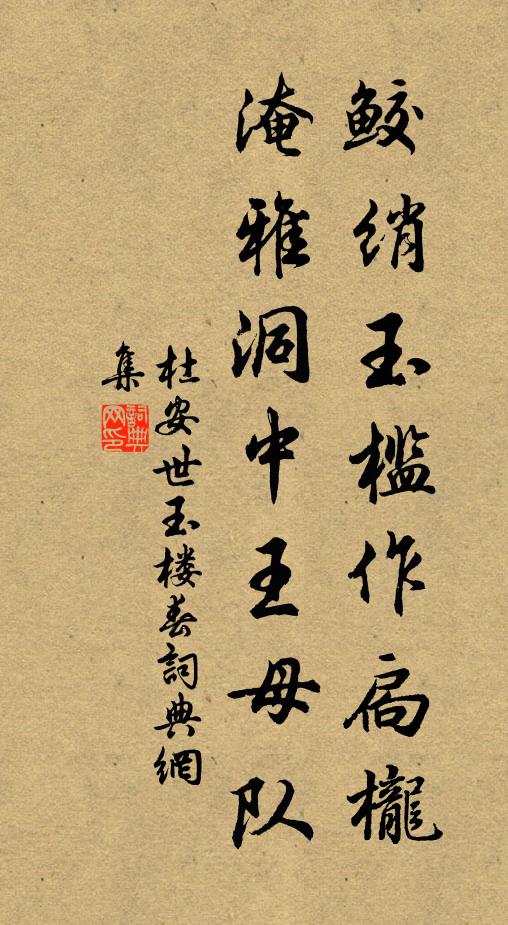 鲛绡玉槛作扃櫳
淹雅洞中王母队
杜安世玉楼春詞典網
集
詞典网印